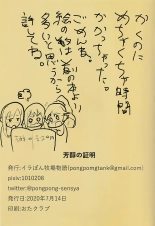 かくのに
めちゃくちゃ時間
かかっちゃった。
ごめんね。
絵の粗は前の本より
多いと思うから
許してね。
芳醇の証明
発行:イラぽん牧場物語(pongpomgtank@gmail.com)
pixiv:1010208
twitter:@pongpong-sensya
発行日:2020年7月14日
印刷:おたクラブ